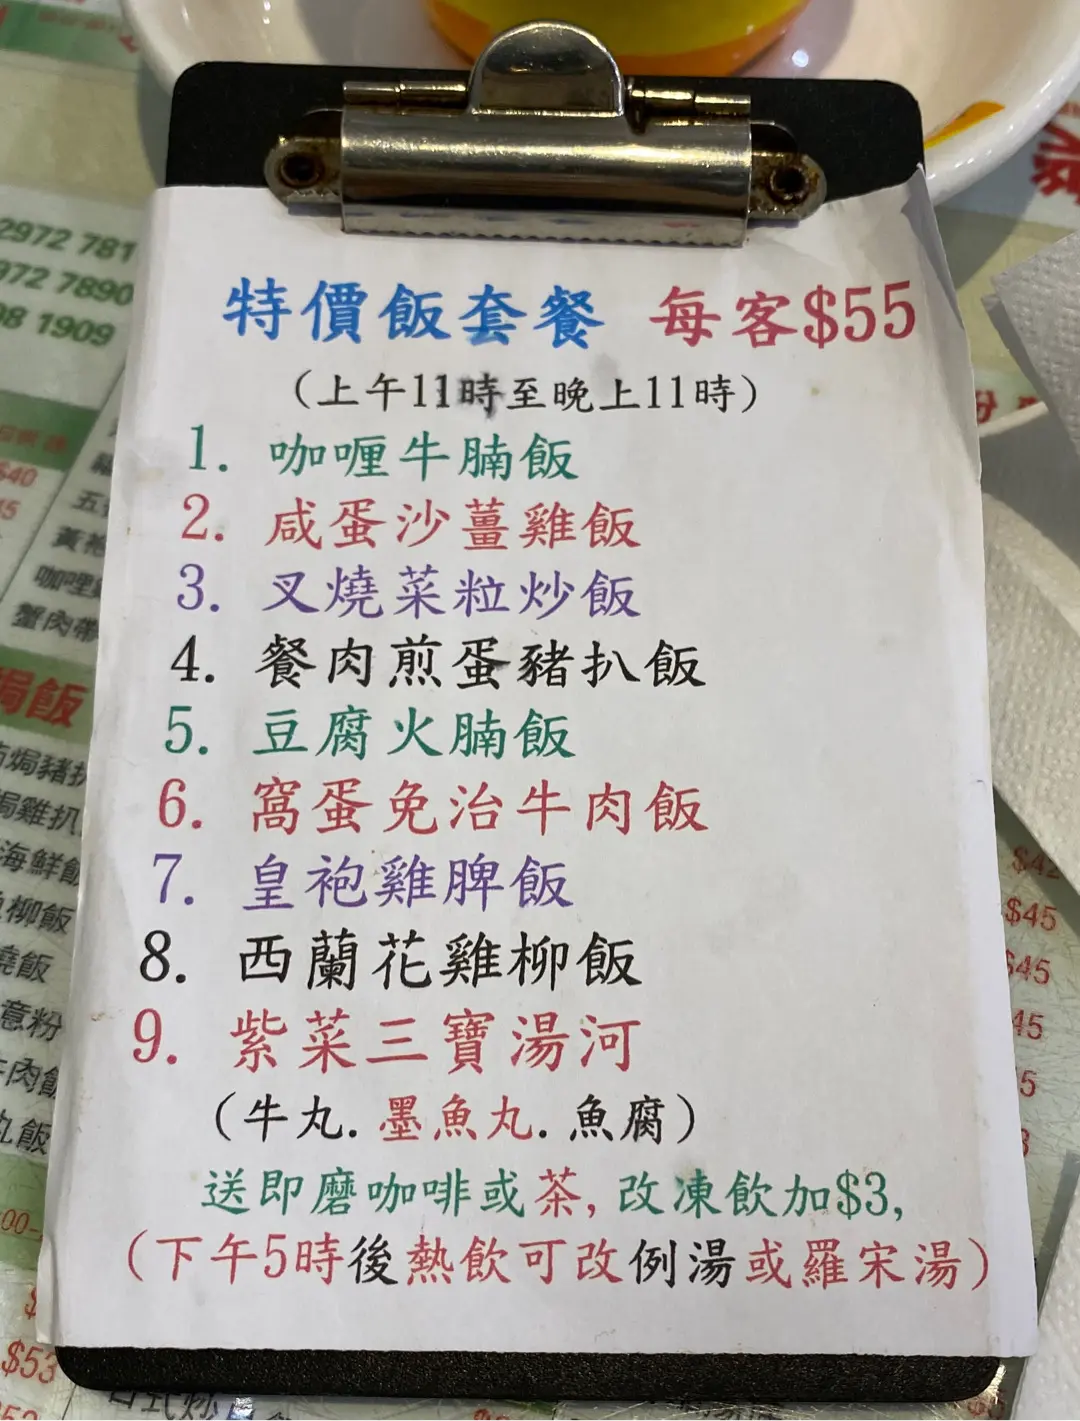 特價飯套餐 每客$55
(上午11時至晚上11時)
1. 咖喱牛腩飯
2. 咸蛋沙薑雞飯
3. 叉燒菜粒炒飯
4. 餐肉煎蛋豬扒飯
5. 豆腐火腩飯
6. 窩蛋免治牛肉飯
7. 皇袍雞脾飯
8. 西蘭花雞柳飯
9. 紫菜三寶湯河
(牛丸.墨魚丸.魚腐)
送即磨咖啡或茶,改凍飲加$3,
(下午5時後熱飲可改例湯或羅宋湯)
2972 781
972 7890
98 1909
$40
蟹肉帶
焗飯
焗雞扒
海鮮飯
柳飯
燒飯
意粉
牛肉飯
丸飯
$53
$42
$45
$45